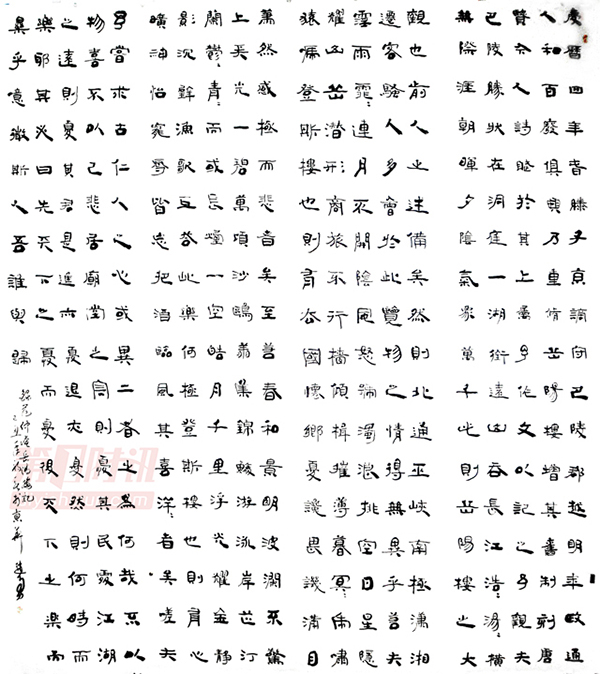 慶曆四年春滕子京謫守巴陵郡越明年政通
人和百廢俱興乃重修岳陽樓增其舊制刻唐
賢今人詩賦於其上屬予作文以記之予觀夫
巴陵勝狀在洞庭一湖銜遠山吞長江浩〻湯〻橫
無際涯朝暉夕陰氣象萬千此則岳陽樓之大
觀也前人之述備矣然則北通巫峽南極瀟湘
遷客騷人多會於此覽物之情得無異乎若夫
霪雨霏〻連月不開陰風怒號濁浪排空日星隱
耀山岳潛形商旅不行檣傾楫摧薄暮冥〻虎嘯
猿啼登斯樓也則有去國懷鄉憂讒畏譏滿目
蕭然感極而悲者矣至若春和景明波瀾不驚
上天光一碧萬頃沙鷗翔集錦鱗游泳岸芷汀
蘭鬱〻青〻而或長煙一空皓月千里浮光耀金靜
影沉璧漁歌互答此樂何極登斯樓也則有心
曠神怡寵辱皆忘把酒臨風其喜洋〻者矣嗟夫
予嘗求古仁人之心或異二者之為何哉不以
物喜不以己悲居廟堂之高則憂其民處江湖
之遠則憂其君是進亦憂退亦憂然則何時而
樂耶其必曰先天下之憂而憂後天下之樂而
樂乎噫微斯人吾誰與歸
錄范仲淹岳陽樓記